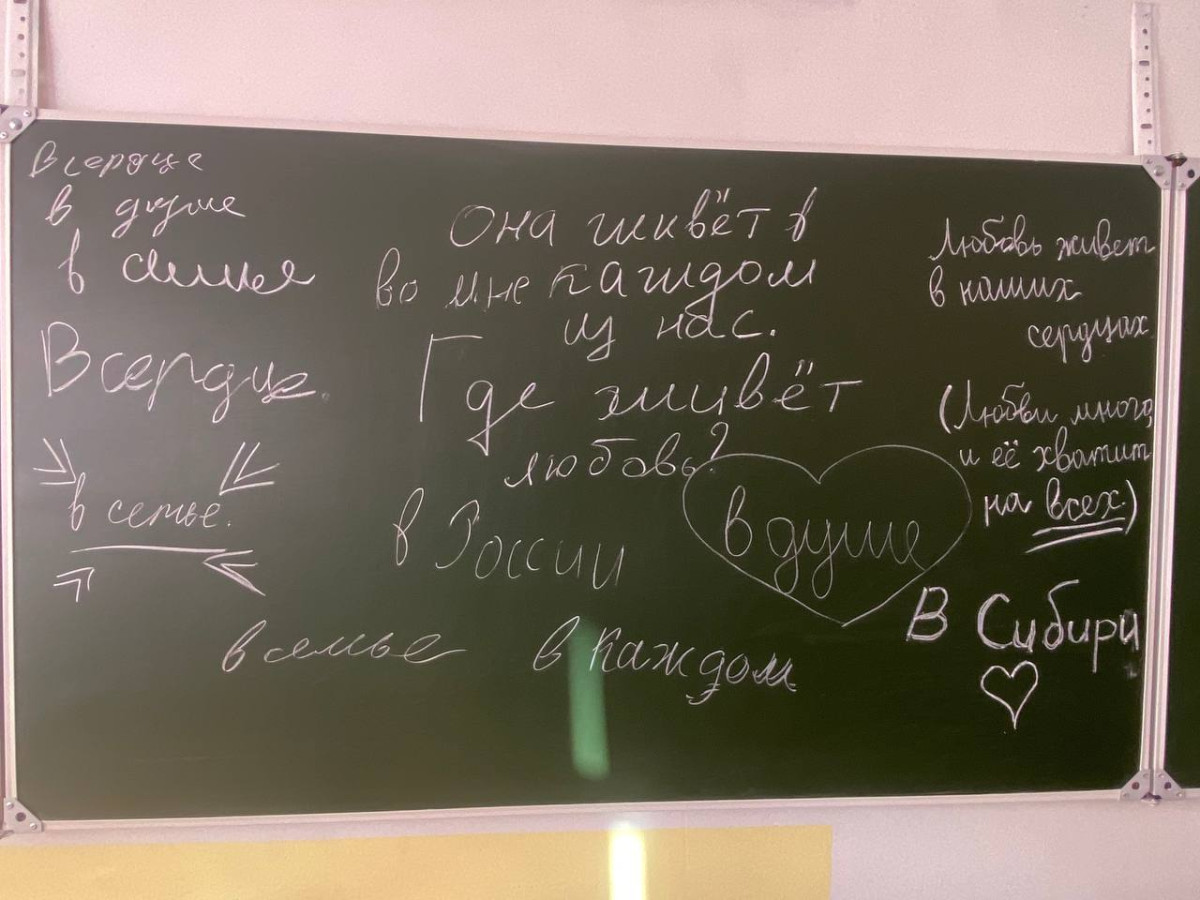 В сердце
в душе
в семье
В сердце.
в семье.
Она живёт в
каждом
из нас.
во мне
Где живёт
любовь?
в России
в душе
в семье
в каждом
Любовь живет
в наших
сердцах
(Любви много,
и её хватит
на всех.)
В Сибири